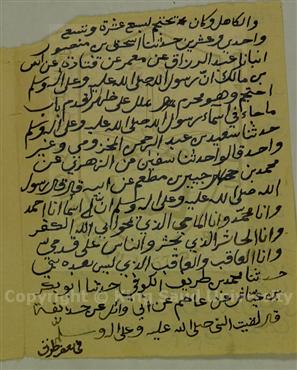 والكاهل وكان يحتجم لسبع عشرة وتسع
واحدى وعشرين حدثنا اسحق بن منصور
انبانا عبد الرزاق عن معمر عن قتادة عن انس
بن مالك ان رسول الله صلى الله عليه وعلى اله وسلم
احتجم وهو محرم بملل على ظهر القدم باب
ما جاء في اسماء رسول الله صلى الله عليه وعلى اله وسلم
حدثنا سعيد بن عبد الرحمن المخزومي وغير
واحد قالوا حدثنا سفين عن الزهري عن
محمد بن جبير بن مطعم عن ابيه قال قال رسول
الله صلى الله عليه وعلى اله وسلم ان لي اسما انا احمد
وانا محمد وانا الماحي الذي يمحو الله بي الكفر
وانا الحاشر الذي يحشر الناس على قدمي
وانا العاقب والعاقب الذي ليس بعده نبي
حدثنا محمد بن طريف الكوفي حدثنا ابو بكر
بن عياش عن عاصم عن ابي وائل عن حذيفة
قال لقيت النبي صلى الله عليه وعلى اله وسلم
في بعض طرق